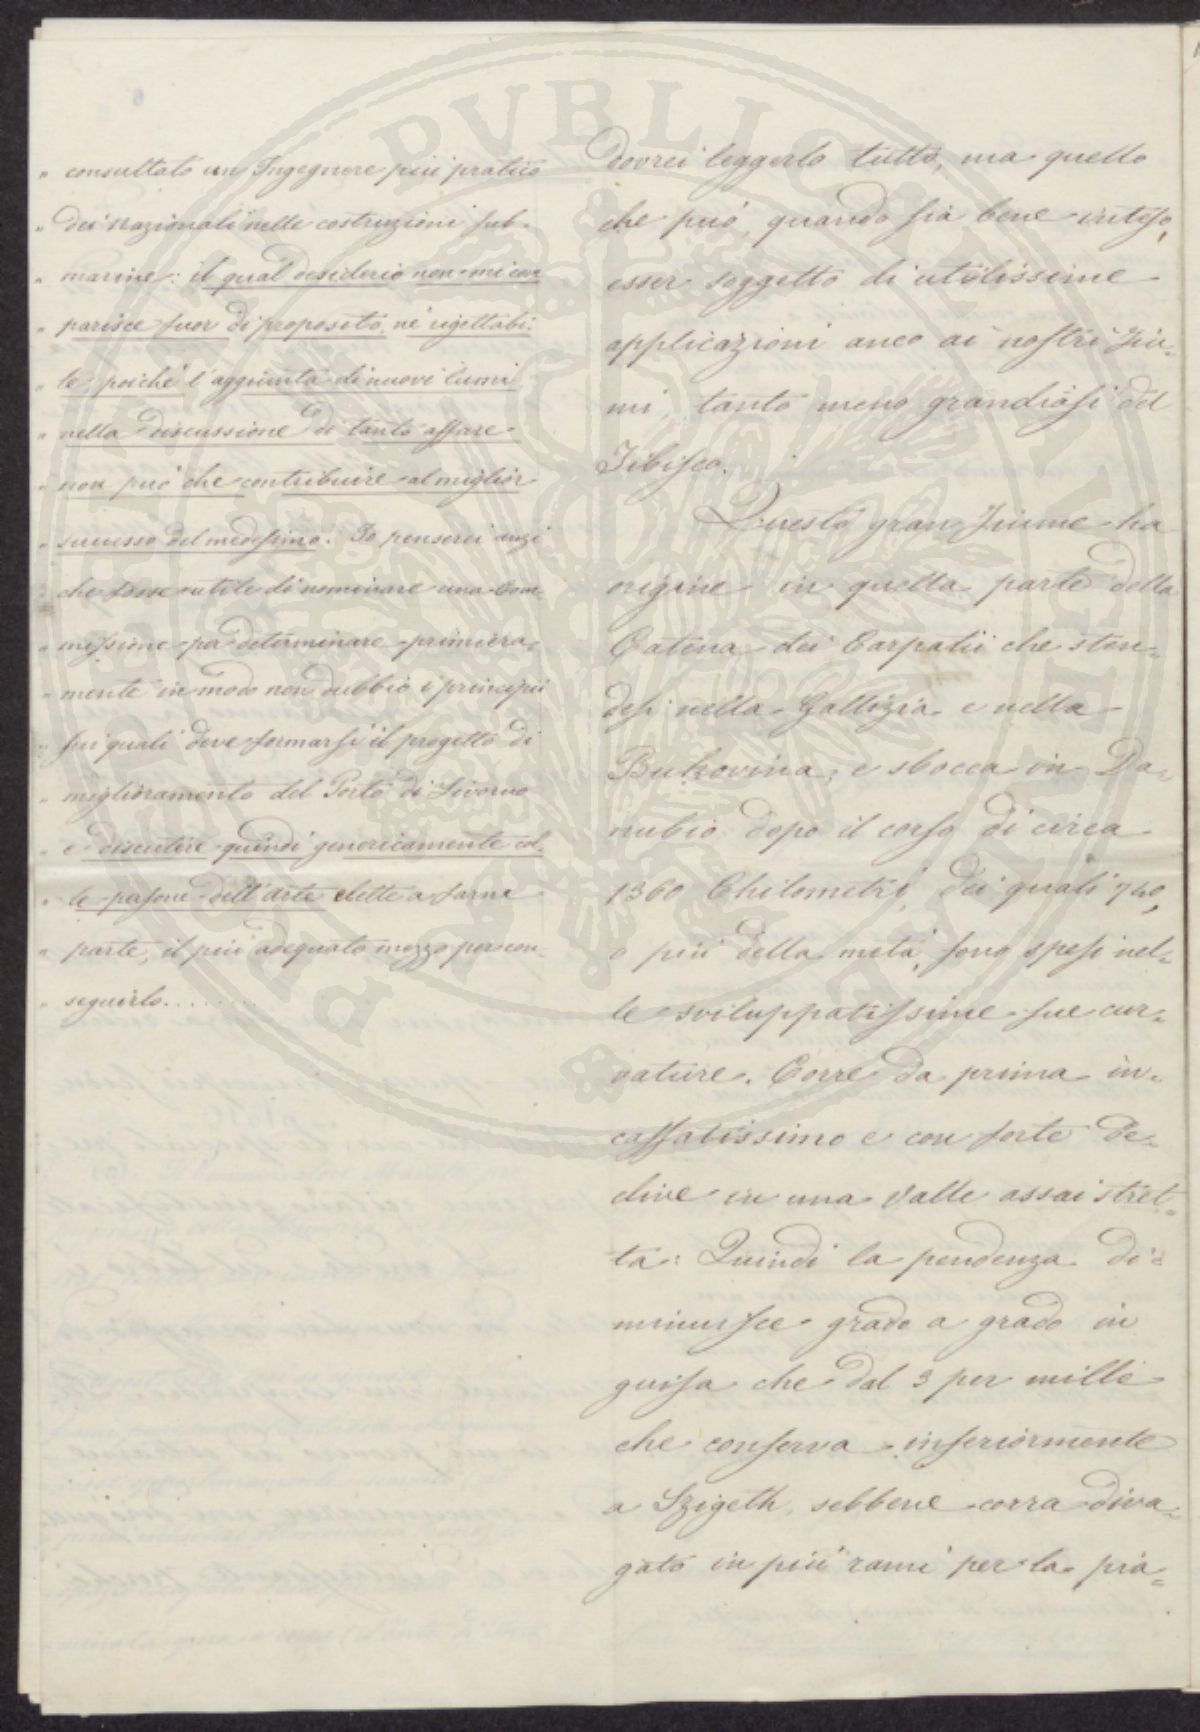 " consultato un Ingegnere più pratico
" dei nazionali nelle costruzioni sub-
" marine: il qual desiderio non mi com
" parisce fuor di proposito, nè rigettabi-
" le, poichè l'aggiunta di nuovi lumi
" nella discussione di tanto affare
" non può che contribuire al miglior
" successo del medesimo. Io penserei anzi
" che fosse utile di nominare una Com
" missione per determinare primiera-
" mente in modo non dubbio i principii
" sui quali deve formarsi il progetto di
" miglioramento del Porto di Livorno
" e discutere quindi genericamente col
" le persone dell'arte elette a farne
" parte, il più adequato mezzo per con
" seguirlo........
dovrei leggerlo tutto, ma quello
che può, quando sia bene inteso,
esser soggetto di utilissime
applicazioni anco ai nostri Fiu-
mi, tanto meno grandiosi del
Tibisco.
Questo gran Fiume ha
origine in quella parte della
Catena dei Carpatii che sten-
desi nella Gallizia e nella
Bukovina; e sbocca in Da-
nubio dopo il corso di circa
1360 Chilometri, dei quali 740,
o più della metà, sono spesi nel-
le sviluppatissime sue cur-
vature. Corre da prima in-
cassatissimo e con forte de-
clive in una Valle assai stret-
ta: Quindi la pendenza di-
minuisce grado a grado in
guisa che dal 3 per mille
che conserva inferiormente
a Szigeth, sebbene corra diva-
gato in più rami per la pia-
PVBLICVM